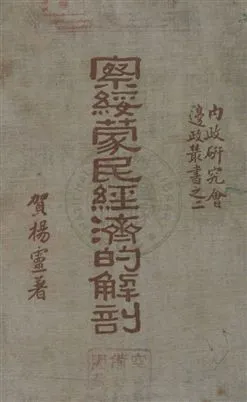 內政研究會
邊政叢書之二
察綏蒙民經濟的解剖
賀揚靈著